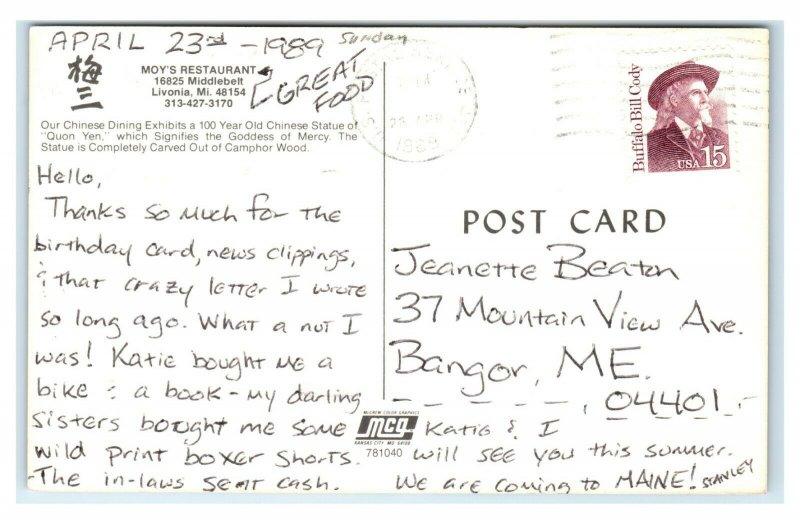 APRIL 23rd - 1989 Sunday
梅
三
MOY'S RESTAURANT
16825 Middlebelt
Livonia, Mi. 48154
313-427-3170
GREAT
FOOD
Our Chinese Dining Exhibits a 100 Year Old Chinese Statue of
"Quon Yen," which Signifies the Goddess of Mercy. The
Statue is Completely Carved Out of Camphor Wood.
Hello,
Thanks so much for the
birthday card, news clippings,
& that crazy letter I wrote
so long ago. What a nut I
was! Katie bought me a
bike & a book - my darling
sisters bought me some
wild print boxer shorts.
The in-laws sent cash.
Katie & I
will see you this summer.
We are coming to MAINE! STANLEY
McGREW COLOR GRAPHICS
mcg
KANSAS CITY, MO. 64108
781040
1989
Buffalo Bill Cody
USA 15
POST CARD
Jeanette Beaton
37 Mountain View Ave.
Bangor, ME.
04401